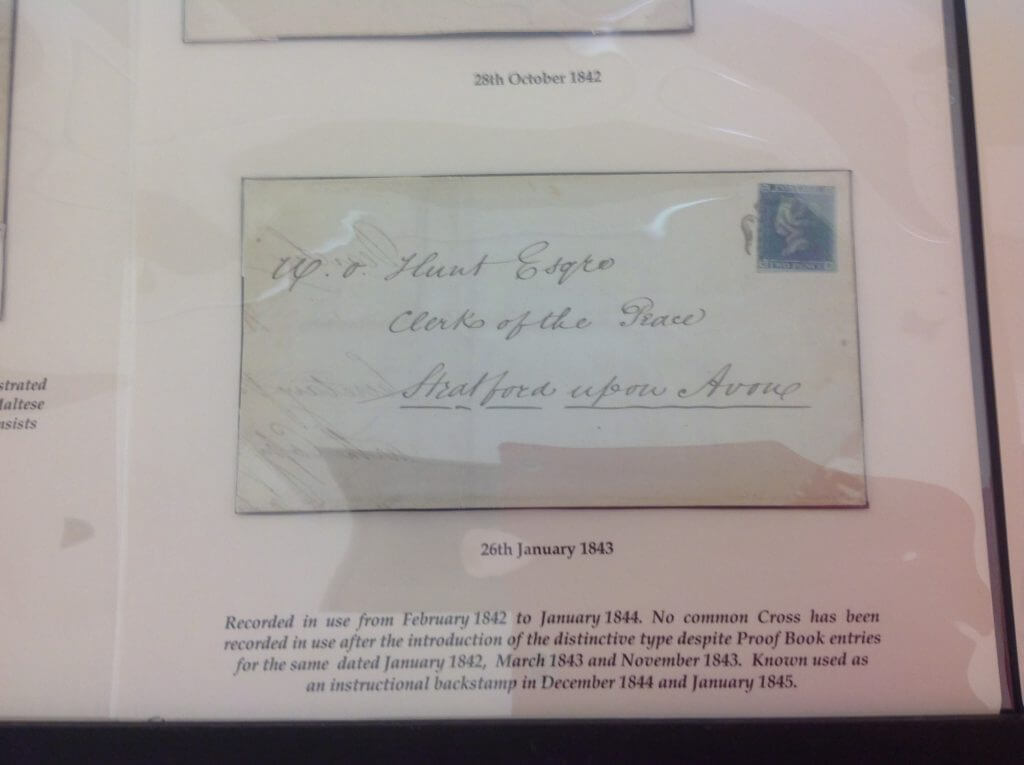 28th October 1842
W. O. Hunt Esqre
Clerk of the Peace
Stratford upon Avon
TWO PENCE
26th January 1843
strated
Maltese
nsists
Recorded in use from February 1842 to January 1844. No common Cross has been
recorded in use after the introduction of the distinctive type despite Proof Book entries
for the same dated January 1842, March 1843 and November 1843. Known used as
an instructional backstamp in December 1844 and January 1845.